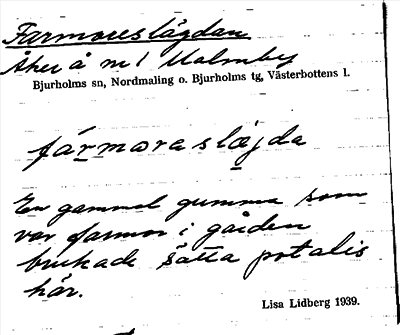 Farmoreslägdan
Åker å m1 Malmby
Bjurholms sn, Nordmaling o. Bjurholms tg, Västerbottens l.
fármoraslæjda
En gammal gumma som
var farmor i gården
brukade sätta potatis
här.
Lisa Lidberg 1939.